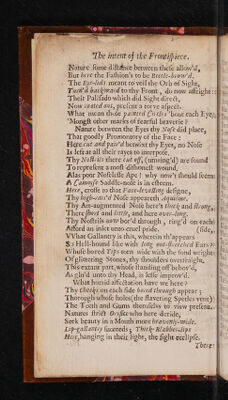 The intent of the Frontispiece.
Nature some distance between these allow'd,
But here the Fashion's to be Beetle-brow'd.
The Eye-lids meant to veil the Orb of Sight,
Turn'd backward to the Front, do now affright:
Their Palisado which did Sight direct,
Now rooted out, present a torve aspect.
What mean those painted Circles 'bout each Eye,
'Mongst other marks of fearful leaverie?
Nature between the Eyes thy Nose did place,
That goodly Promontory of the Face:
Here cut and pair'd betwixt thy Eyes, no Nose
Is left at all their rayes to interpose.
Thy Nostrils there cut off, (unwing'd) are found
To represent a most dishonest wound.
Alas poor Noseless Ape! why now't should seem
A Camoyse Saddle-nose is in esteem.
Here, crosse to that Face-levelling designe,
Thy high-rais'd Nose appeareth Aquiline.
Thy Art-augmented Nose here's thick and strong,
There short and little, and here over-long.
Thy Nostrils now bor'd through, ring'd on each
Afford an inlet unto cruel pride. (side,
What Gallantry is this, wherein th'appears
So Hell-hound like with long out-stretched Ears?
Whose bored Tips torn wide with the fond weight
Of glittering Stones, thy shoulders overfraight.
This extant part, whose standing off behov'd,
As glu'd unto thy Head, is lesse improv'd.
What horrid affectation have we here?
Thy cheeks on each side bored through appear;
Thorough whose holes (the slavering Species vent)
The Teeth and Gums themselves to view present.
Natures strict Orifice who here deride,
Seek beauty in a Mouth more heavenly-wide.
Lip-gallantry succeeds; Thick-Blabber-lips
Here, hanging in their sight, the sight ecclipse.
There